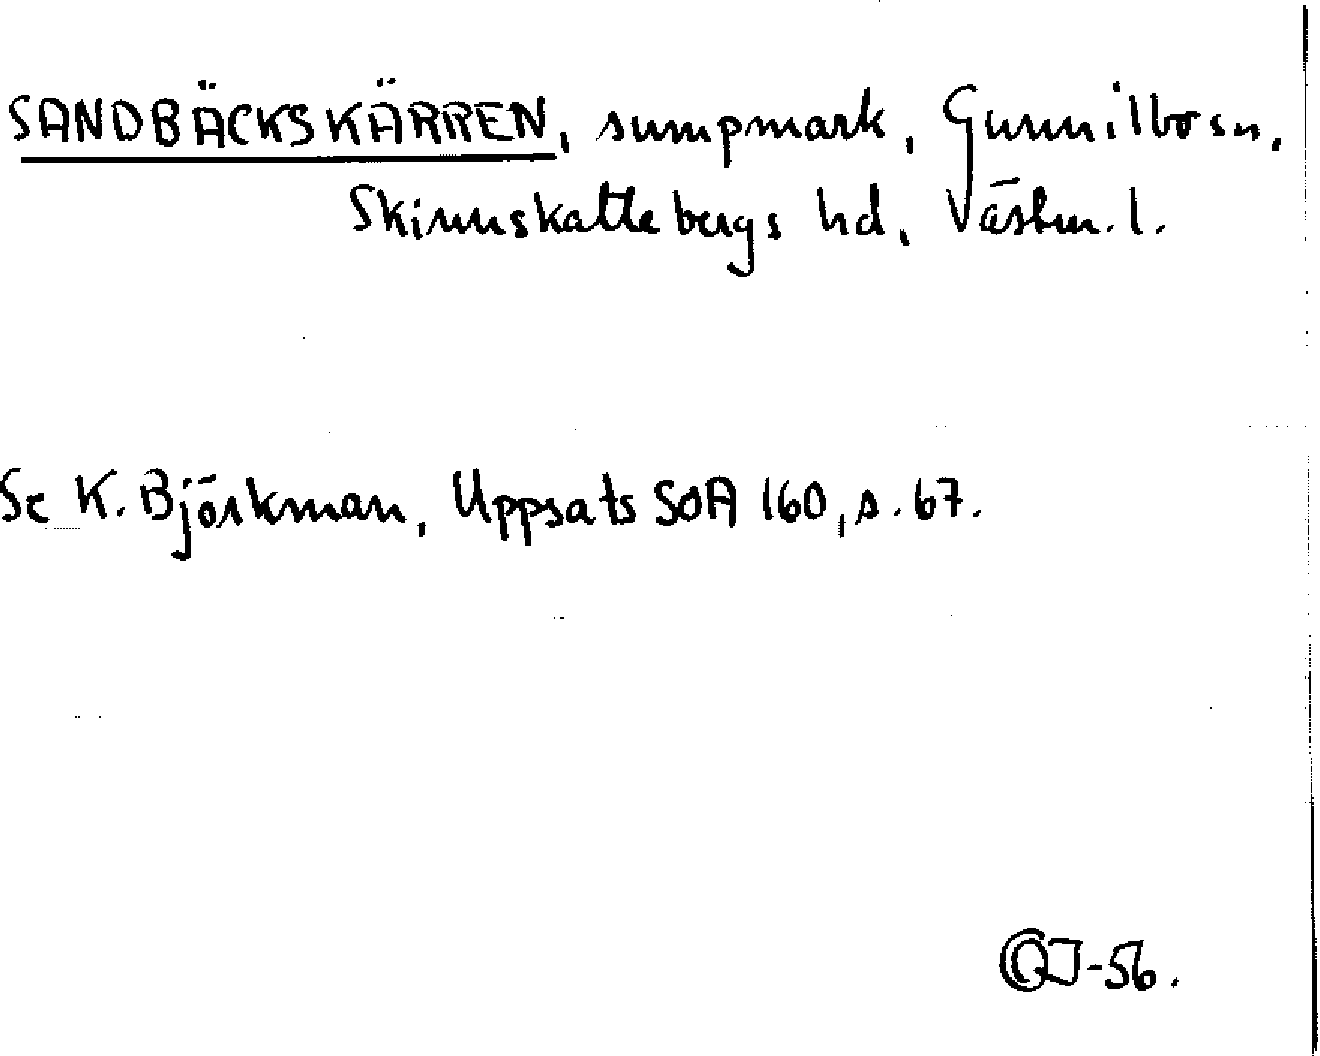 SANDBÄCKSKÄRREN, sumpmark, Gunnilbo sn,
Skinnskattebergs hd, Västm. l.
Se K. Björkman, Uppsats SOA 160, s. 67.
-56.